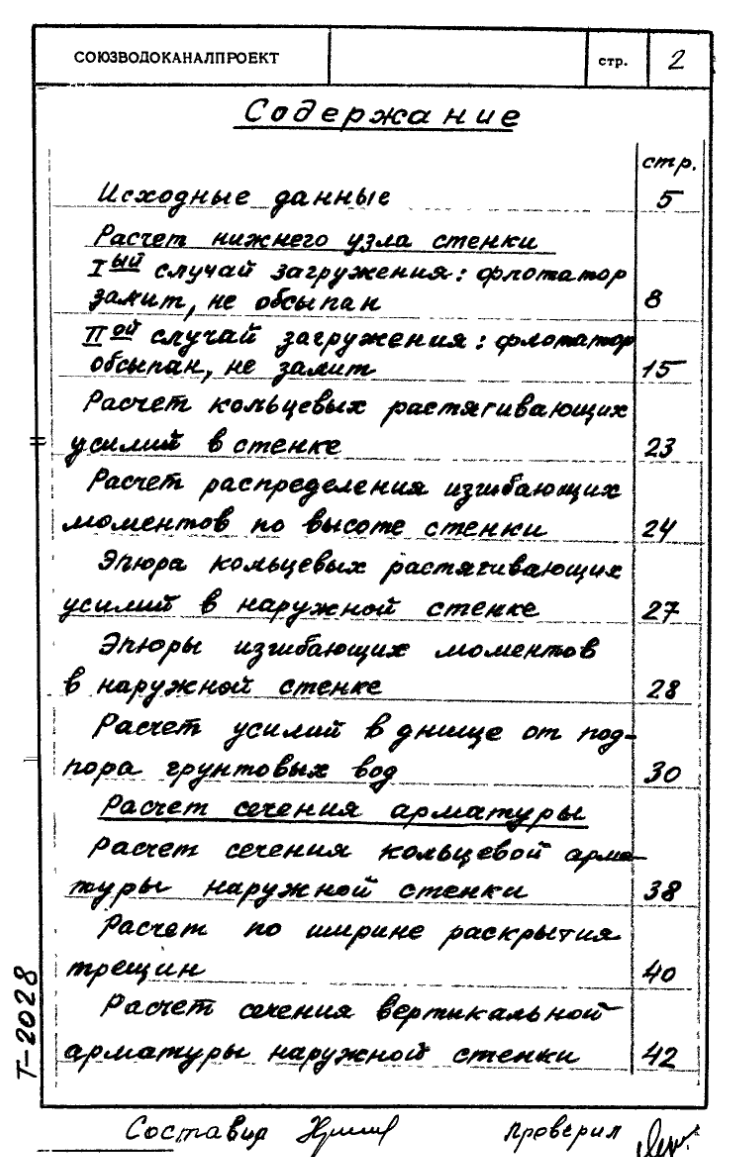 СОЮЗВОДОКАНАЛПРОЕКТ стр. 2
Содержание
стр.
Исходные данные 5
Расчет нижнего узла стенки
Iый случай загружения: флотатор
залит, не обсыпан 8
IIой случай загружения: флотатор
обсыпан, не залит 15
Расчет кольцевых растягивающих
усилий в стенке 23
Расчет распределения изгибающих
моментов по высоте стенки 24
Эпюра кольцевых растягивающих
усилий в наружной стенке 27
Эпюры изгибающих моментов
в наружной стенке 28
Расчет усилий в днище от под-
пора грунтовых вод 30
Расчет сечения арматуры
Расчет сечения кольцевой арма-
туры наружной стенки 38
Расчет по ширине раскрытия
трещин 40
Расчет сечения вертикальной
арматуры наружной стенки 42
Т-2028
Составил Проверил